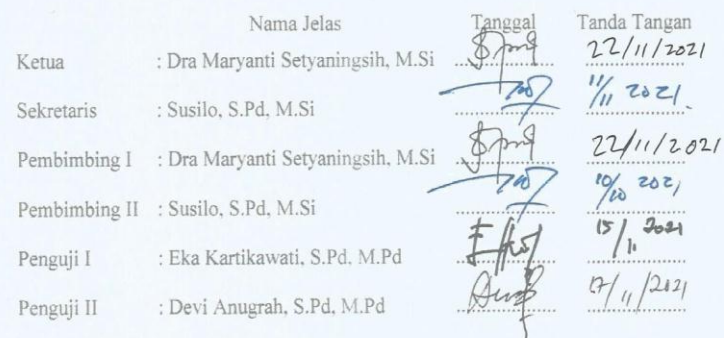 Nama Jelas Tanggal Tanda Tangan
Ketua : Dra Maryanti Setyaningsih, M.Si 22/11/2021
Sekretaris : Susilo, S.Pd, M.Si 11/11 2021.
Pembimbing I : Dra Maryanti Setyaningsih, M.Si 22/11/2021
Pembimbing II : Susilo, S.Pd, M.Si 10/10 2021
Penguji I : Eka Kartikawati, S.Pd, M.Pd 15/11 2021
Penguji II : Devi Anugrah, S.Pd, M.Pd 17/11/2021